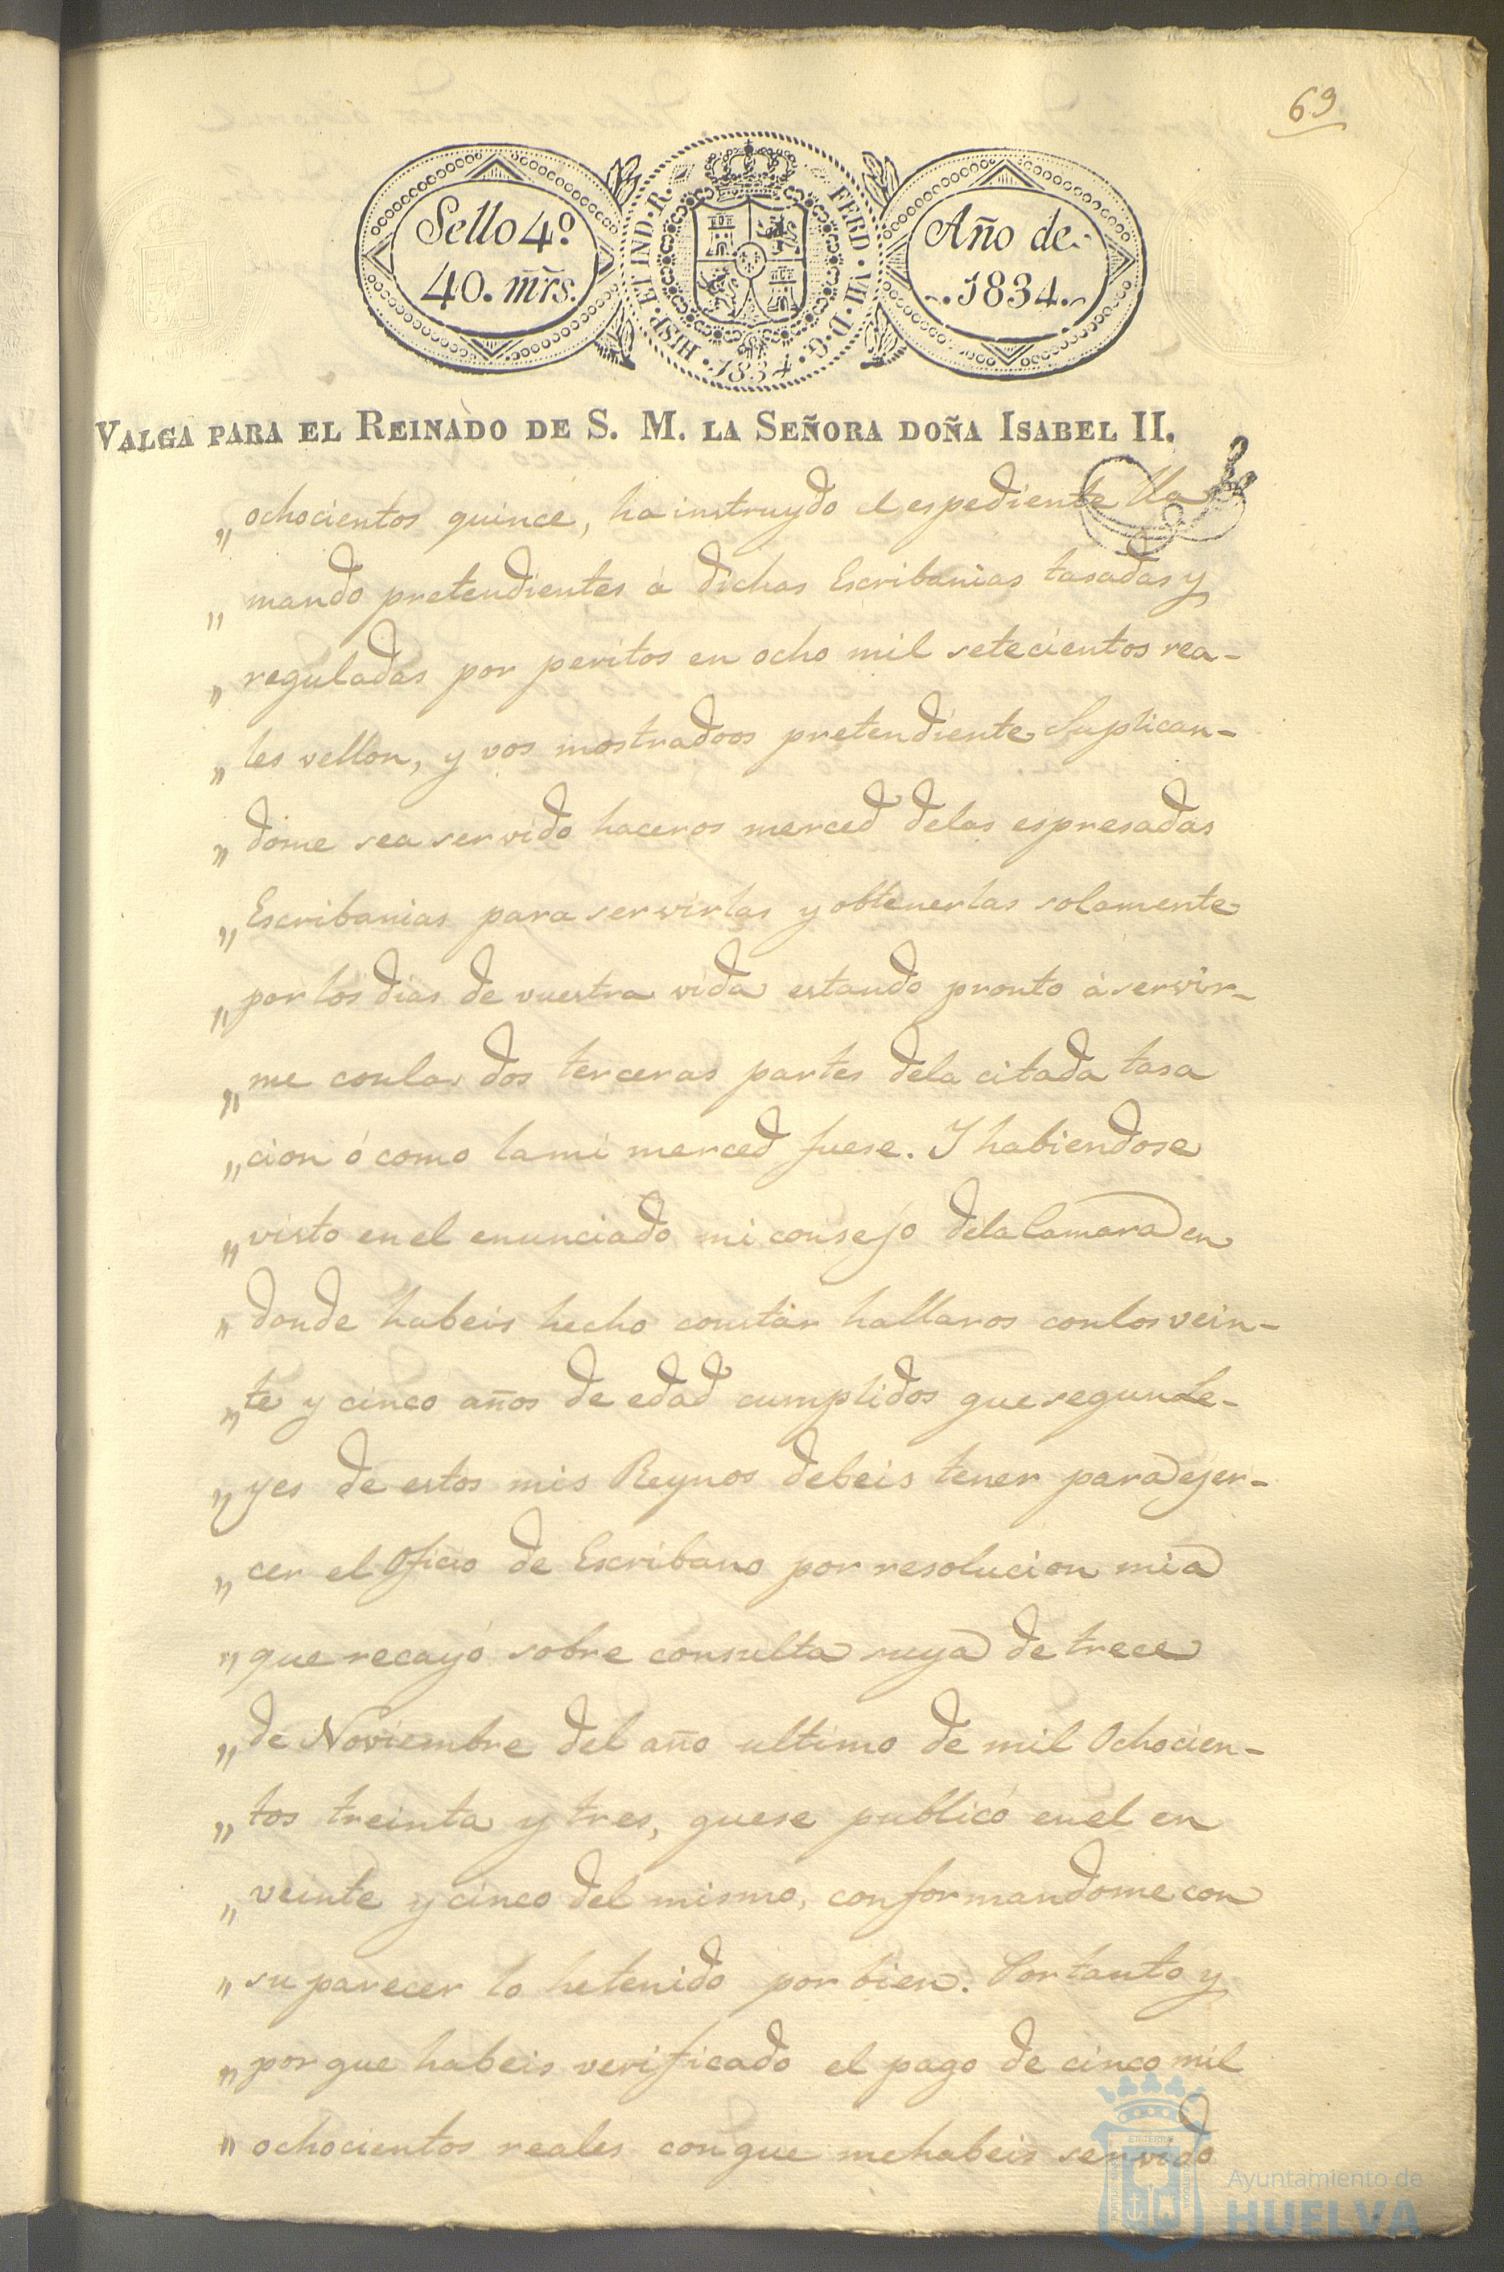 69
Sello 4º
40. mrs.
HISP. ET IND. R. FERD. VII. D. G. 1834.
Año de
1834.
VALGA PARA EL REINADO DE S. M. LA SEÑORA DOÑA ISABEL II.
„ ochocientos quince, ha instruydo el espediente lla
„ mando pretendientes á dichas Escribanias tasadas y
„ reguladas por peritos en ocho mil setecientos rea-
„ les vellon, y vos mostradoos pretendiente Suplican-
„ dome sea servido haceros merced delas espresadas
„ Escribanias para servirlas y obtenerlas solamente
„ por los dias de vuestra vida estando pronto á servir-
„ me conlas dos terceras partes dela citada tasa
„ cion ó como lami merced fuese. Y habiendose
„ visto en el enunciado mi consejo dela Camara en
„ donde habeis hecho constar hallaros conlos vein-
„ te y cinco años de edad cumplidos que segun Le-
„ yes de estos mis Reynos debeis tener para ejer-
„ cer el Oficio de Escribano por resolucion mia
„ que recayó sobre consulta suya de trece
„ de Noviembre del año ultimo de mil Ochocien-
„ tos treinta y tres, quese publicó enel en
„ veinte y cinco del mismo, conformandome con
„ su parecer lo hetenido por bien. Por tanto y
„ por que habeis verificado el pago de cinco mil
„ ochocientos reales con que mehabeis servido
Ayuntamiento de
HUELVA